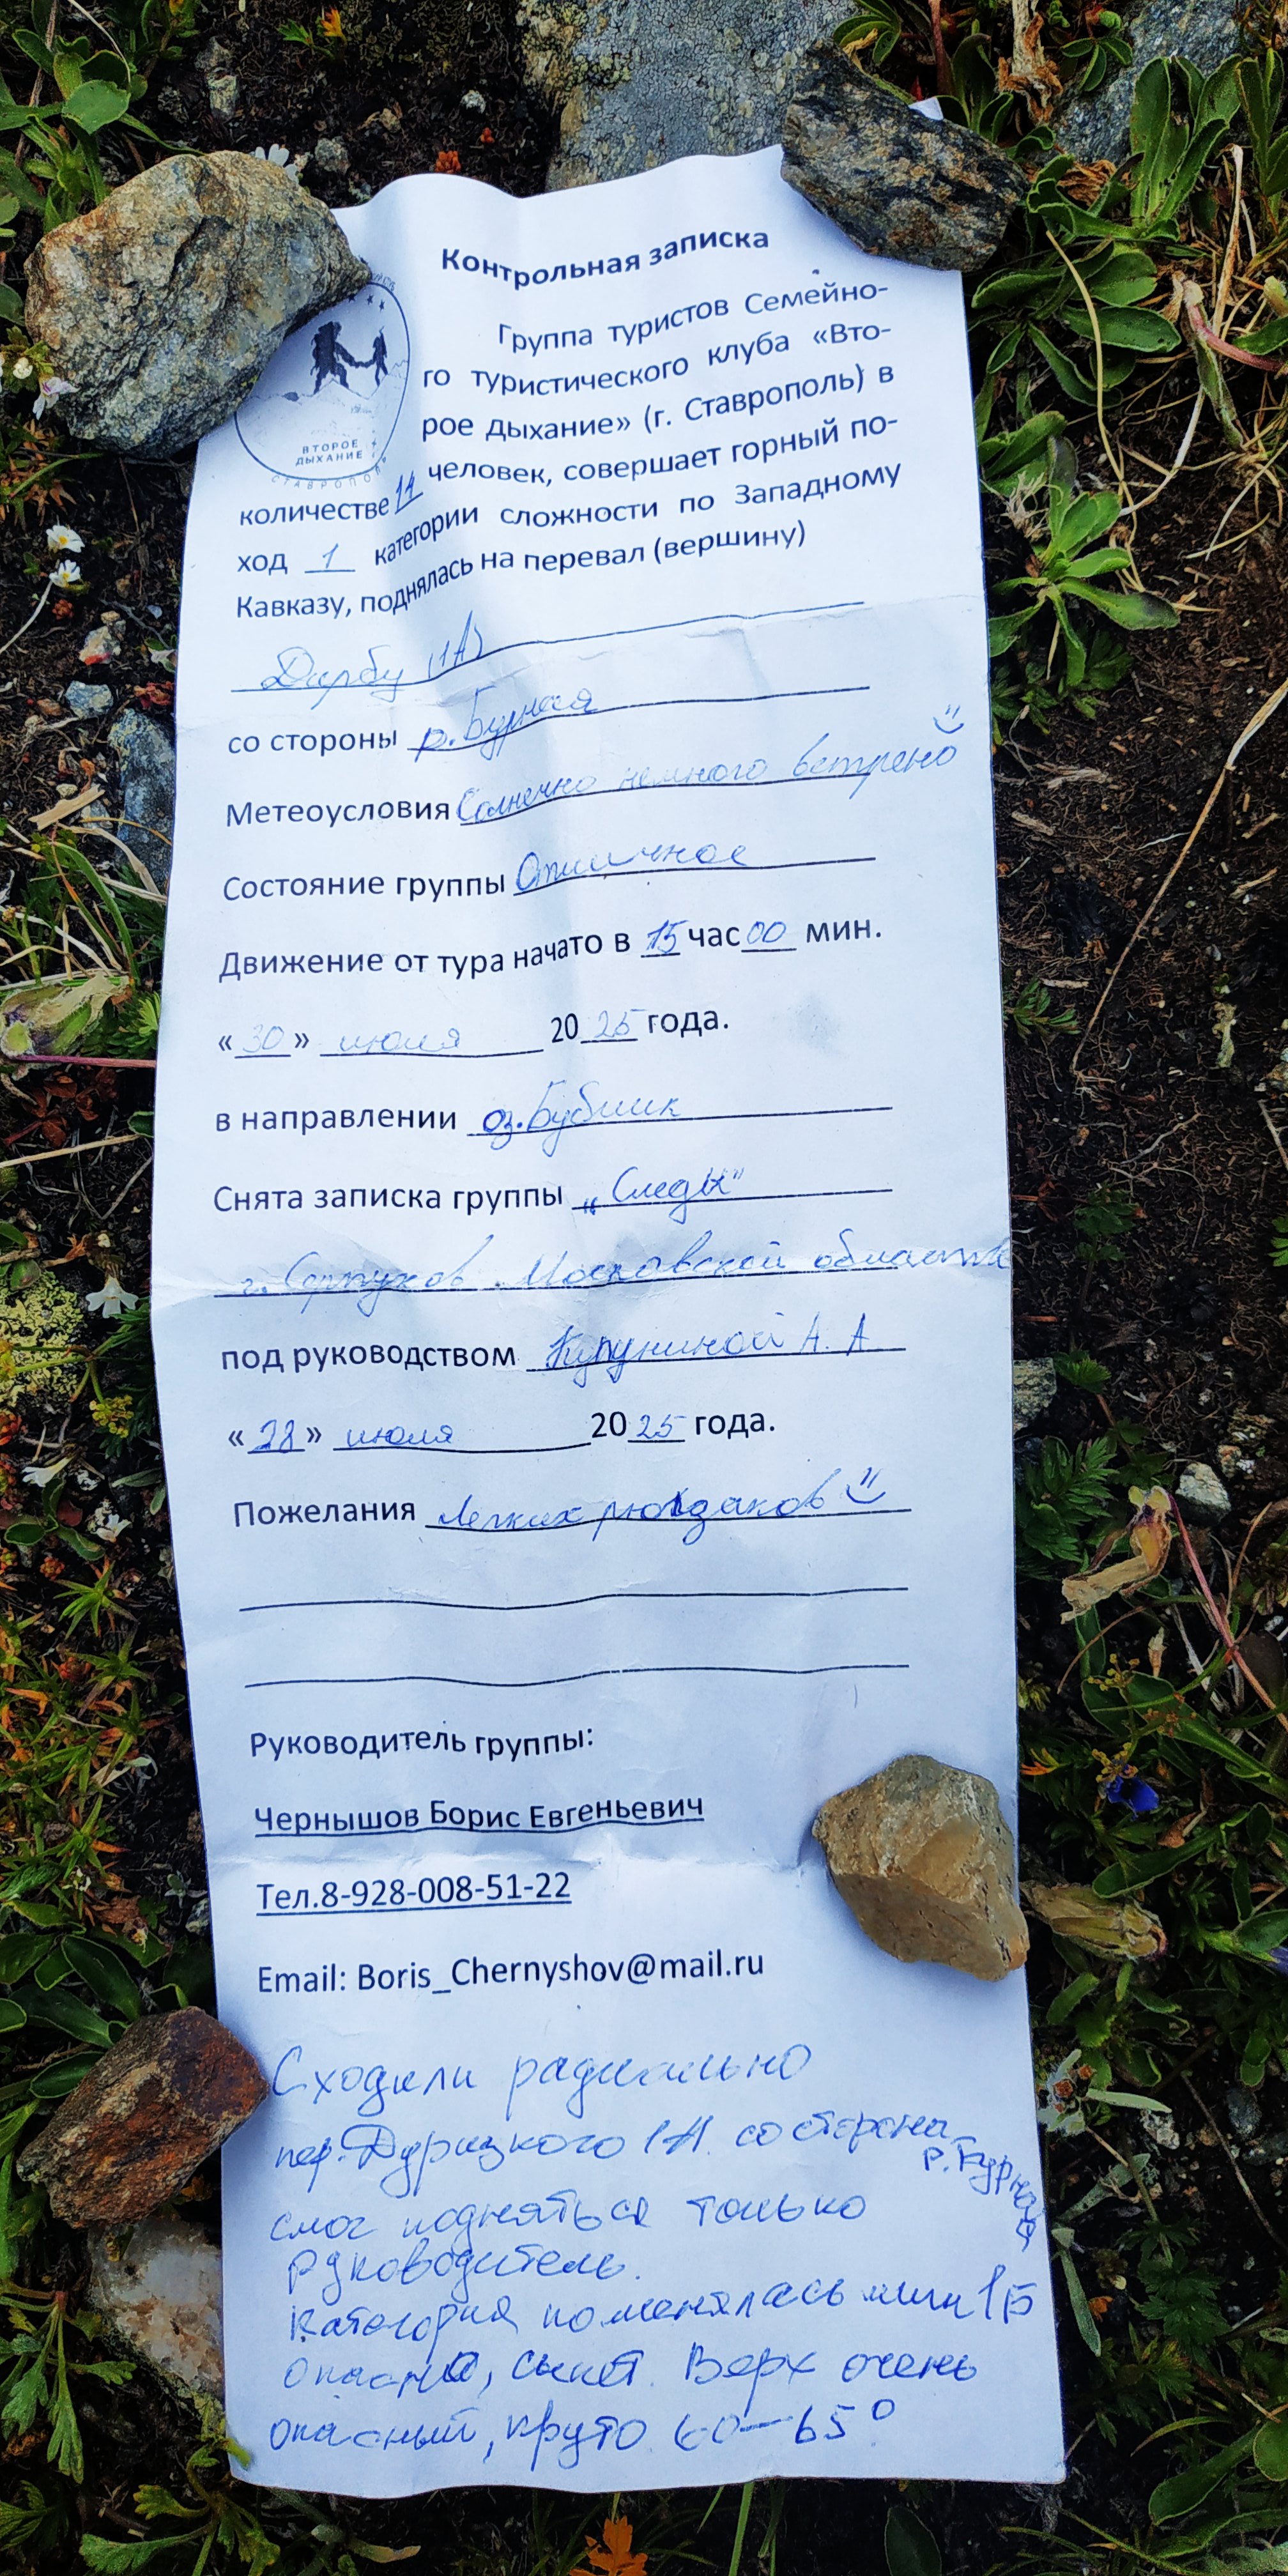 Контрольная записка
ВТОРОЕ
ДЫХАНИЕ
СТАВРОПОЛЬ
Группа туристов Семейно-
го туристического клуба «Вто-
рое дыхание» (г. Ставрополь) в
количестве 14 человек, совершает горный по-
ход 1 категории сложности по Западному
Кавказу, поднялась на перевал (вершину)
Дырбу (1А)
со стороны р. Бурная
Метеоусловия Солнечно немного ветрено
Состояние группы Отличное
Движение от тура начато в 15 час 00 мин.
«30» июля 2025 года.
в направлении оз.
Снята записка группы „Следы"
г. Серпухов Московской области
под руководством А. А.
«28» июля 2025 года.
Пожелания Легких рюкзаков
Руководитель группы:
Чернышов Борис Евгеньевич
Тел.8-928-008-51-22
Email: Boris_Chernyshov@mail.ru
Сходили радиально
пер. 1А со стороны
р. Бурная
смог подняться только
руководитель.
Категория поменялась мин 1Б
опасно, сыпет. Верх очень
опасный, круто 60-65°